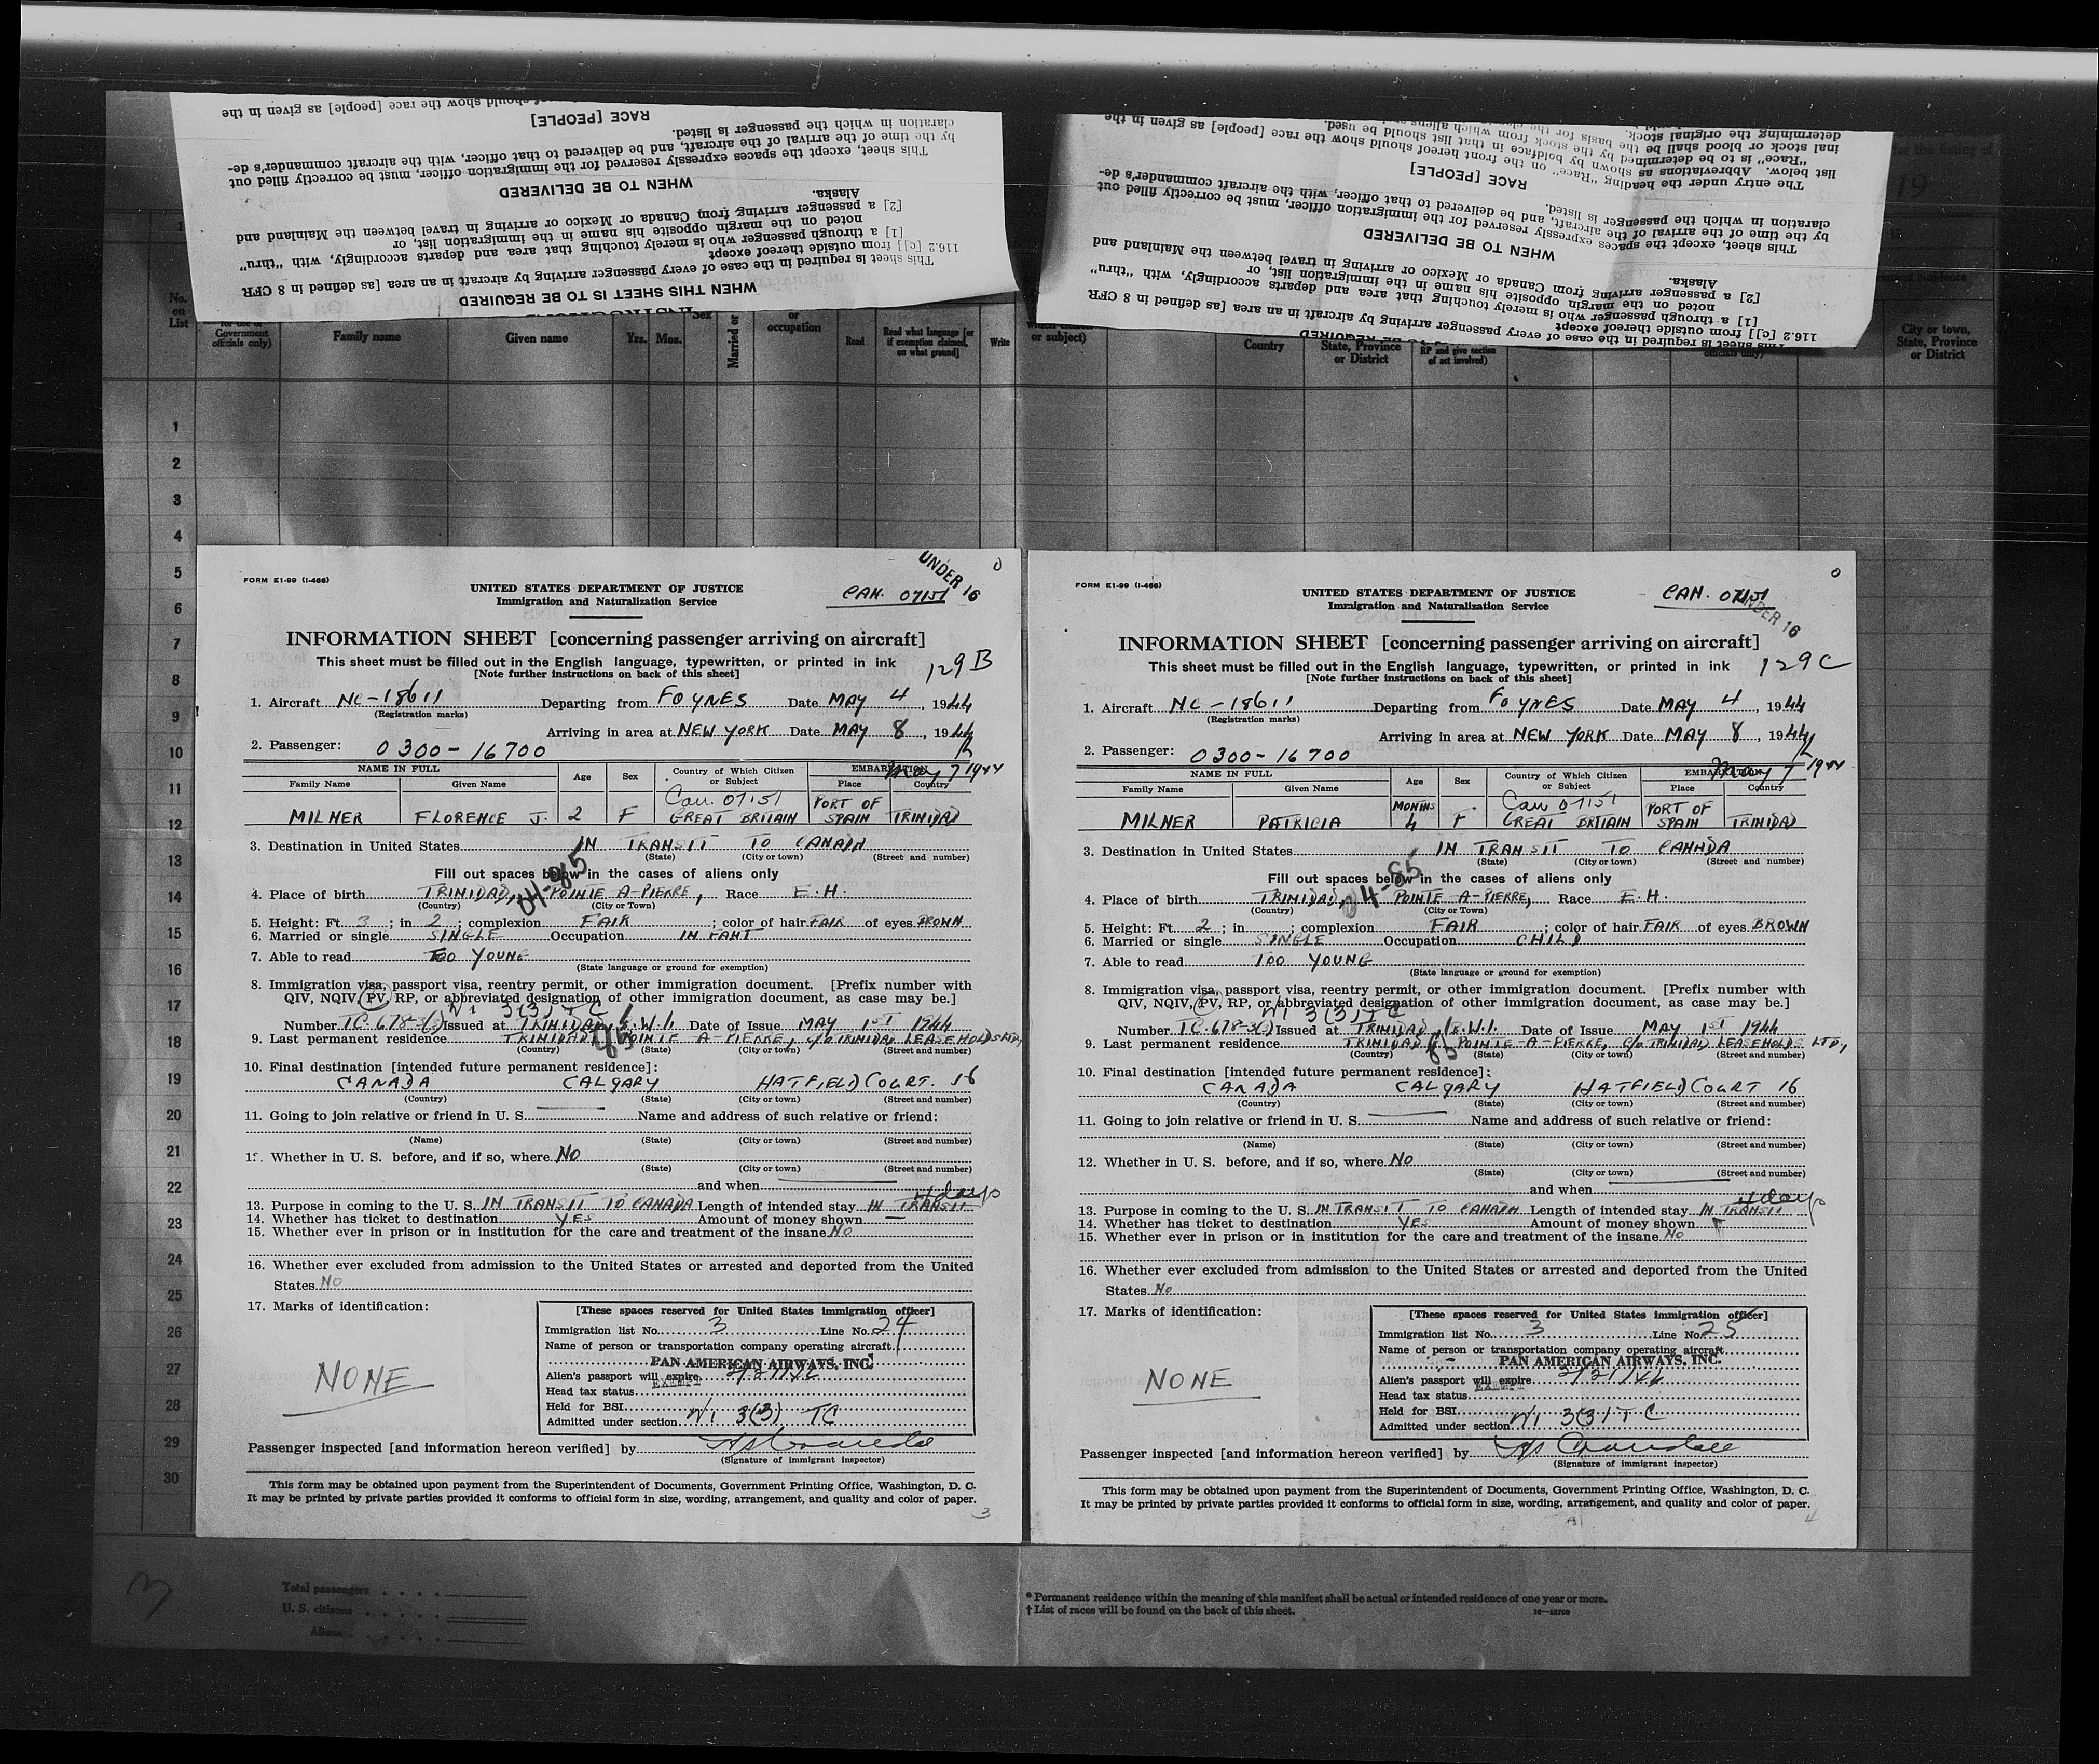 should show the race [people] as given in the
RACE [PEOPLE]
claration in which the passenger is listed.
by the time of the arrival of the aircraft, and be delivered to that officer, with the aircraft commander's de-
This sheet, except the spaces expressly reserved for the immigration officer, must be correctly filled out
WHEN TO BE DELIVERED
Alaska.
[2] a passenger arriving from Canada or Mexico or arriving in travel between the Mainland and
noted on the margin opposite his name in the immigration list, or
[1] a through passenger who is merely touching that area and departs accordingly, with "thru"
116.2 [c]] from outside thereof except
This sheet is required in the case of every passenger arriving by aircraft in an area [as defined in 8 CFR
WHEN THIS SHEET IS TO BE REQUIRED
determining the original stock.
inal stock or blood shall be the basis for the
"Race" is to be determined by the stock from which aliens
list below. Abbreviations as shown by boldface in that list should be used.
The entry under the heading "Race" on the front hereof should show the race [people] as given in the
RACE [PEOPLE]
claration in which the passenger is listed.
by the time of the arrival of the aircraft, and be delivered to that officer, with the aircraft commander's de-
This sheet, except the spaces expressly reserved for the immigration officer, must be correctly filled out
WHEN TO BE DELIVERED
Alaska.
[2] a passenger arriving from Canada or Mexico or arriving in travel between the Mainland and
noted on the margin opposite his name in the immigration list, or
[1] a through passenger who is merely touching that area and departs accordingly, with "thru"
116.2 [c]] from outside thereof except
This sheet is required in the case of every passenger arriving by aircraft in an area [as defined in 8 CFR
for the listing of
No. on List
Government officials only)
Family name
Given name
Yrs. Mos.
Sex
Married or
or occupation
Read
Read what language [or if exemption claimed, on what ground]
Write
or subject)
Country
State, Province or District
RP and give section of act involved)
officials only)
City or town, State, Province or District
1
2
3
4
5
6
7
8
9
10
11
12
13
14
15
16
17
18
19
20
21
22
23
24
25
26
27
28
29
30
FORM E1-99 (I-466)
UNDER 16
0
UNITED STATES DEPARTMENT OF JUSTICE
Immigration and Naturalization Service
CAN. 07151
INFORMATION SHEET [concerning passenger arriving on aircraft]
This sheet must be filled out in the English language, typewritten, or printed in ink
[Note further instructions on back of this sheet]
129 B
1. Aircraft NC-18611 Departing from FOYNES Date MAY 4, 1944
(Registration marks)
Arriving in area at NEW YORK Date MAY 8, 1944
2. Passenger: 0300-16700
May 7 1944
NAME IN FULL Age Sex Country of Which Citizen or Subject EMBARKATION
Family Name Given Name Place Country
Can. 07151
MILNER FLORENCE J. 2 F GREAT BRITAIN PORT OF SPAIN TRINIDAD
3. Destination in United States IN TRANSIT TO CANADA
(State) (City or town) (Street and number)
Fill out spaces below in the cases of aliens only
04-85
4. Place of birth TRINIDAD, POINTE-A-PIERRE, Race E.H.
(Country) (City or Town)
5. Height: Ft. 3; in 2; complexion FAIR; color of hair FAIR of eyes BROWN
6. Married or single SINGLE Occupation INFANT
7. Able to read TOO YOUNG
(State language or ground for exemption)
8. Immigration visa, passport visa, reentry permit, or other immigration document. [Prefix number with
QIV, NQIV, PV, RP, or abbreviated designation of other immigration document, as case may be.]
3(3) TC
Number TC. 678-3( ) Issued at TRINIDAD, B.W.I. Date of Issue MAY 1ST 1944
9. Last permanent residence TRINIDAD, POINTE-A-PIERRE, c/o TRINIDAD LEASEHOLDS LTD,
85
(Country) (State) (City or town) (Street and number)
10. Final destination [intended future permanent residence]:
CANADA CALGARY HATFIELD COURT. 16
(Country) (State) (City or town) (Street and number)
11. Going to join relative or friend in U. S. Name and address of such relative or friend:
(Name) (State) (City or town) (Street and number)
12. Whether in U. S. before, and if so, where NO
(State) (City or town) (Street and number)
and when
4 days
13. Purpose in coming to the U. S. IN TRANSIT TO CANADA Length of intended stay IN TRANSIT
14. Whether has ticket to destination YES Amount of money shown —
15. Whether ever in prison or in institution for the care and treatment of the insane NO
16. Whether ever excluded from admission to the United States or arrested and deported from the United
States NO
17. Marks of identification:
NONE
[These spaces reserved for United States immigration officer]
Immigration list No. 3 Line No. 24
Name of person or transportation company operating aircraft
PAN AMERICAN AIRWAYS, INC.
Alien's passport will expire 2/21/46
EXEMPT
Head tax status
Held for BSI
Admitted under section 3(3) TC
Passenger inspected [and information hereon verified] by
(Signature of immigrant inspector)
This form may be obtained upon payment from the Superintendent of Documents, Government Printing Office, Washington, D. C.
It may be printed by private parties provided it conforms to official form in size, wording, arrangement, and quality and color of paper.
3
FORM E1-99 (I-466)
0
UNITED STATES DEPARTMENT OF JUSTICE
Immigration and Naturalization Service
CAN. 07151
UNDER 16
INFORMATION SHEET [concerning passenger arriving on aircraft]
This sheet must be filled out in the English language, typewritten, or printed in ink
[Note further instructions on back of this sheet]
129 C
1. Aircraft NC-18611 Departing from FOYNES Date MAY 4, 1944
(Registration marks)
Arriving in area at NEW YORK Date MAY 8, 1944
2. Passenger: 0300-16700
May 7 1944
NAME IN FULL Age Sex Country of Which Citizen or Subject EMBARKATION
Family Name Given Name Place Country
Can 07151
MILNER PATRICIA MONTHS 4 F GREAT BRITAIN PORT OF SPAIN TRINIDAD
3. Destination in United States IN TRANSIT TO CANADA
(State) (City or town) (Street and number)
Fill out spaces below in the cases of aliens only
04-85
4. Place of birth TRINIDAD, POINTE A-PIERRE, Race E.H.
(Country) (City or Town)
5. Height: Ft. 2; in ; complexion FAIR; color of hair FAIR of eyes BROWN
6. Married or single SINGLE Occupation CHILD
7. Able to read TOO YOUNG
(State language or ground for exemption)
8. Immigration visa, passport visa, reentry permit, or other immigration document. [Prefix number with
QIV, NQIV, PV, RP, or abbreviated designation of other immigration document, as case may be.]
3(3) TC
Number TC. 678-3( ) Issued at TRINIDAD, B.W.I. Date of Issue MAY 1ST 1944
9. Last permanent residence TRINIDAD, POINTE-A-PIERRE, c/o TRINIDAD LEASEHOLDS LTD,
85
(Country) (State) (City or town) (Street and number)
10. Final destination [intended future permanent residence]:
CANADA CALGARY HATFIELD COURT 16
(Country) (State) (City or town) (Street and number)
11. Going to join relative or friend in U. S. Name and address of such relative or friend:
(Name) (State) (City or town) (Street and number)
12. Whether in U. S. before, and if so, where NO
(State) (City or town) (Street and number)
and when
4 days
13. Purpose in coming to the U. S. IN TRANSIT TO CANADA Length of intended stay IN TRANSIT
14. Whether has ticket to destination YES Amount of money shown
15. Whether ever in prison or in institution for the care and treatment of the insane NO
16. Whether ever excluded from admission to the United States or arrested and deported from the United
States NO
17. Marks of identification:
NONE
[These spaces reserved for United States immigration officer]
Immigration list No. 3 Line No. 25
Name of person or transportation company operating aircraft
PAN AMERICAN AIRWAYS, INC.
Alien's passport will expire 2/21/46
EXEMPT
Head tax status
Held for BSI
Admitted under section 3(3) TC
Passenger inspected [and information hereon verified] by
(Signature of immigrant inspector)
This form may be obtained upon payment from the Superintendent of Documents, Government Printing Office, Washington, D. C.
It may be printed by private parties provided it conforms to official form in size, wording, arrangement, and quality and color of paper.
4
3
Total passengers
U. S. citizens
Aliens
* Permanent residence within the meaning of this manifest shall be actual or intended residence of one year or more.
† List of races will be found on the back of this sheet.